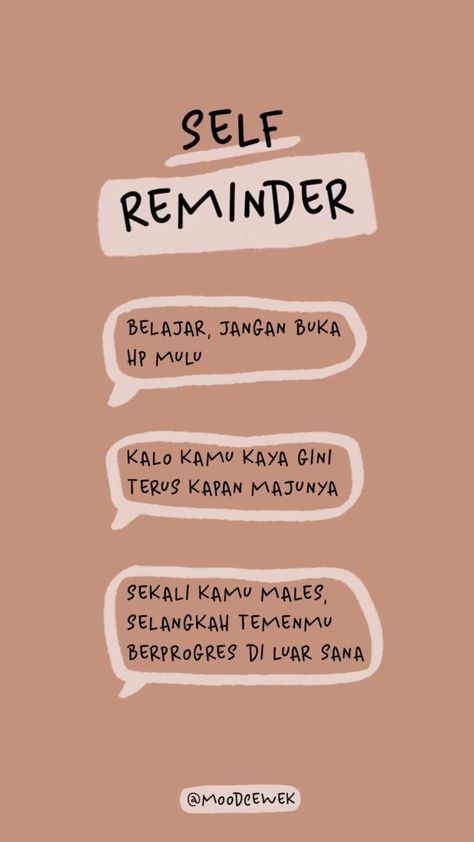 SELF
REMINDER
BELAJAR, JANGAN BUKA
HP MULU
KALO KAMU KAYA GINI
TERUS KAPAN MAJUNYA
SEKALI KAMU MALES,
SELANGKAH TEMENMU
BERPROGRES DI LUAR SANA
@MOODCEWEK